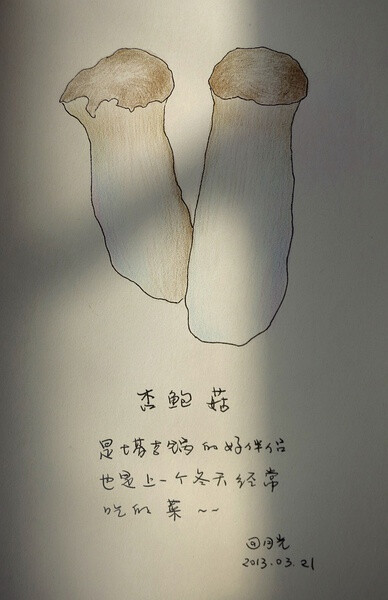 杏鲍菇
是塔吉锅的好伴侣
也是上一个冬天经常
吃的菜~~
月光
2013.03.21